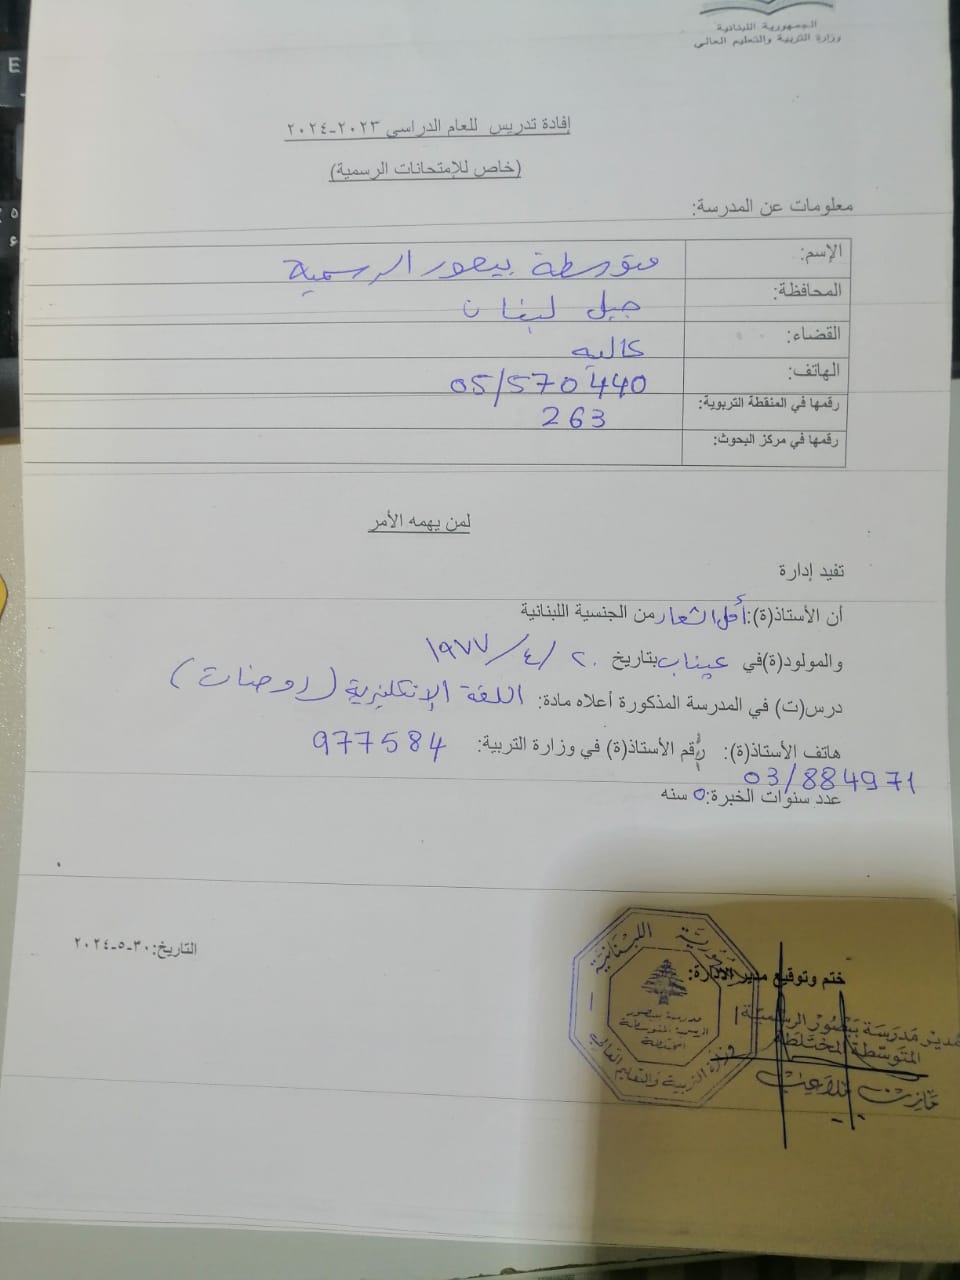 الجمهورية اللبنانية
وزارة التربية والتعليم العالي
إفادة تدريس للعام الدراسي ٢٠٢٣-٢٠٢٤
(خاص للإمتحانات الرسمية)
معلومات عن المدرسة:
الإسم: متوسطة بيصور الرسمية
المحافظة: جبل لبنان
القضاء: عاليه
الهاتف: 05/570440
رقمها في المنقطة التربوية: 263
رقمها في مركز البحوث:
لمن يهمه الأمر
تفيد إدارة
أن الأستاذ(ة): أمل الشعار من الجنسية اللبنانية
والمولود(ة)في عيناب بتاريخ ٢٠/٤/١٩٧٧
درس(ت) في المدرسة المذكورة أعلاه مادة: اللغة الإنكليزية (روضات)
هاتف الأستاذ(ة): رقم الأستاذ(ة) في وزارة التربية: 977584
03/884971
عدد سنوات الخبرة: ٥ سنه
التاريخ: ٣٠-٥-٢٠٢٤
ختم وتوقيع مدير الإدارة:
الجمهورية اللبنانية
مدرسة بيصور
الرسمية المتوسطة
المختلطة
وزارة التربية والتعليم العالي
مدير مدرسة بيصور الرسمية
المتوسطة المختلطة
مازن ملاعب